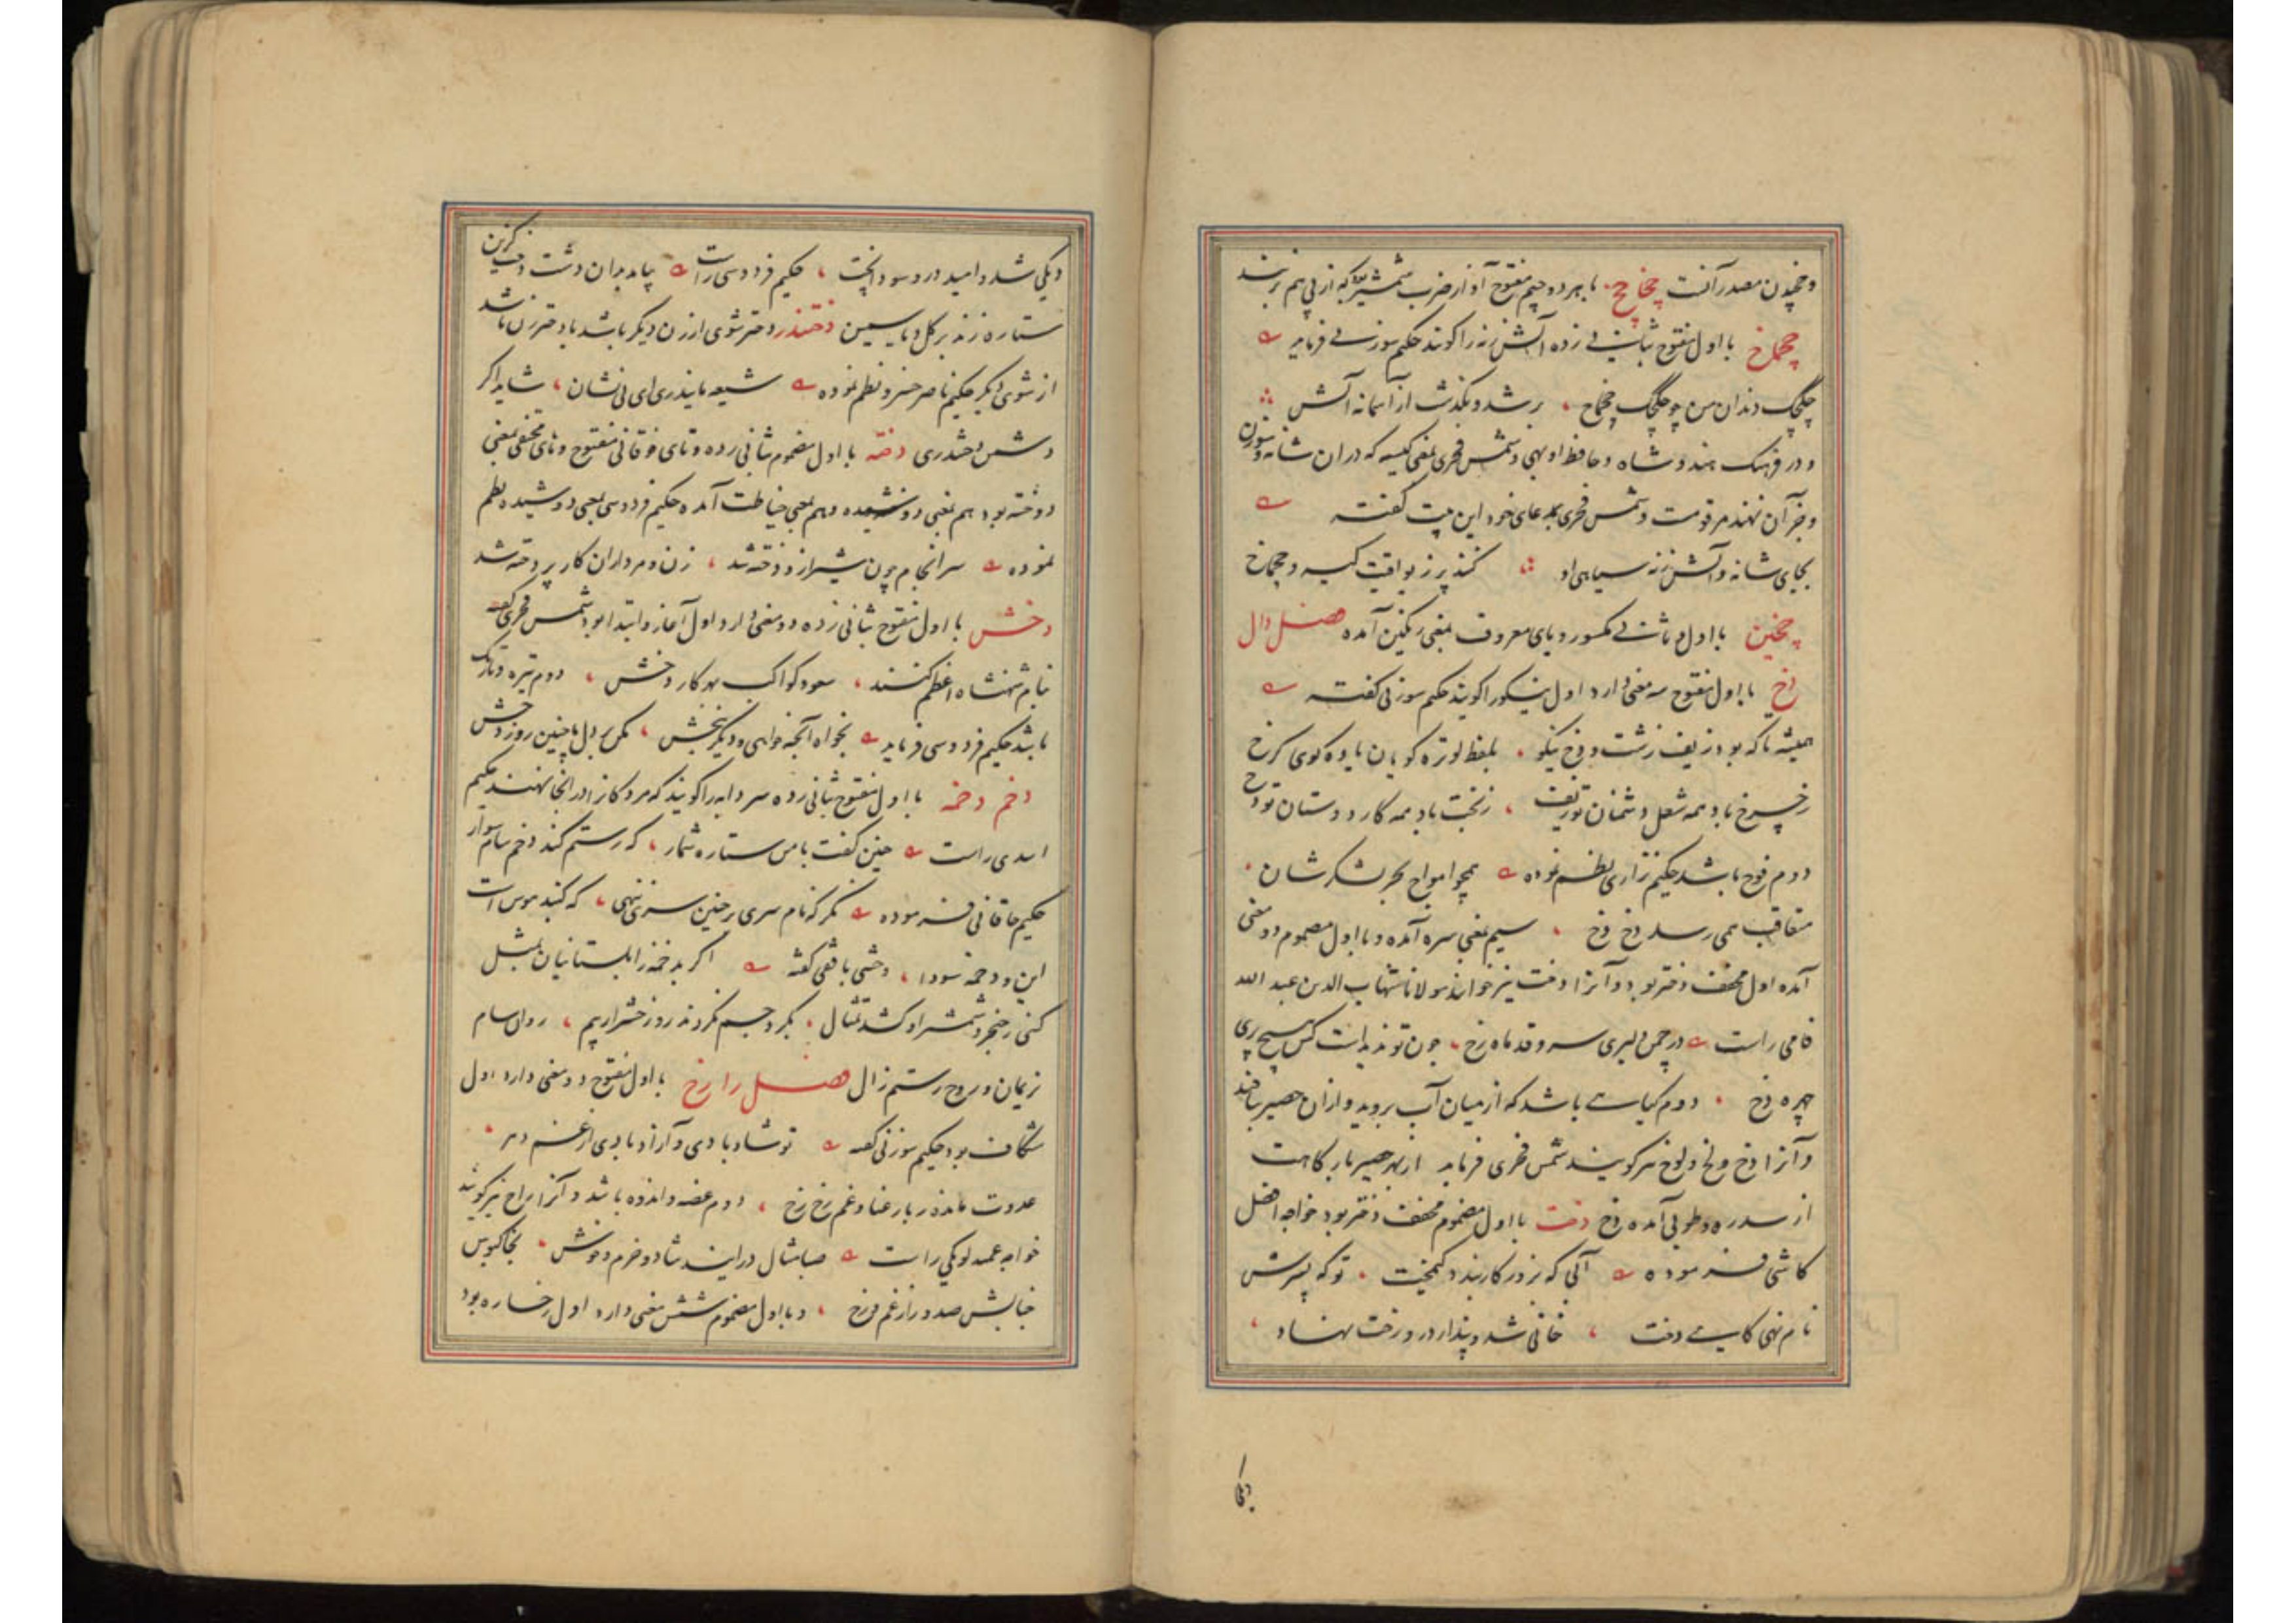 و چخیدن مصدر آنست چخاچخ با هر دو جیم مفتوح آواز ضرب شمشیر که از پی هم زنند
چخماخ با اول مفتوح بثانی زده آتش زنه را گویند حکیم سوزنی فرماید
دندان من چو چخماخ برشد و بگذشت از آسمانه آتش
و در فرهنگ هندوشاه و حافظ اوبهی و شمس فخری بمعنی کیسه که در ان شانه و سوزن
و جز آن نهند مرقومست و شمس فخری بمدعای خود این بیت گفته
بجای شانه و آتش زنه سپاهی او کند پر زر و یاقت کیسه و چخماخ
چخین با اول و ثانی مکسور و یای معروف بمعنی رنگین آمده فصل دال
دخ با اول مفتوح سه معنی دارد اول نیکو را گویند حکیم سوزنی گفته
همیشه تا که بود زیف زشت و دخ نیکو بلفظ لوتره کویان یاوه کوی کرخ
باد همه شغل دشمنان تو زیف زبخت باد همه کار دوستان تو دخ
دوم فوج باشد حکیم نزاری نظم نموده همچو امواج بحر لشکر شان
متعاقب همی رسد دخ دخ سیم بمعنی سره آمده و با اول مضموم دو معنی
آمده اول مخفف دختر بود و آنرا دخت نیز خوانند مولانا شهاب الدین عبد الله
فامی راست در چمن دلبری سرو قد ماه رخ چون تو ندیدست کس هیچ پری
چهره دخ دوم کیاهی باشد که از میان آب بروید و از ان حصیر بافند
و آنرا دخ و لخ و لوخ نیز گویند شمس فخری فرماید از بهر حصیر بارکاهت
از سدره و طوبی آمده دخ دخت با اول مضموم مخفف دختر بود خواجه افضل
کاشی فرموده آنی که بزور کار بند و کیمخت تو که پسرش
نام نهی کاهی دخت خانی شد و پندار در و رخت نهاد
دیکی
دیکی شد و امید در و سودا پخت حکیم فردوسی راست بیامد بدان دشت دخت گزین
ستاره زند بر کل و یاسمین دختندر دختر شوی از زن دیکر باشد یا دختر زن باشد
از شوی دیکر حکیم ناصر خسرو نظم نموده شیعه مایندری ای بی نشان شاید اگر
دشمن دختندری دخته با اول مضموم بثانی زده و تای فوقانی مفتوح و های مختفی بمعنی
دوخته بود هم بمعنی دوشیده و هم بمعنی خیاطت آمده حکیم فردوسی بمعنی دوشیده نظم
نموده سرانجام چون شیر از و دخته شد زن و مرد از ان کار پردخته شد
دخش با اول مفتوح بثانی زده دو معنی دارد اول آغاز و ابتدا بود شمس فخری گفته
بنام شهنشاه اعظم کنند سعود کواکب بهر کار دخش دوم تیره و تاریک
باشد حکیم فردوسی فرماید بخواه آنچه خواهی و دیگر ببخش مکن بر دل ما چنین روز دخش
دخم دخمه با اول مفتوح بثانی زده سردابه را گویند که مردگانرا در انجا نهند حکیم
اسدی راست چنین گفت با من ستاره شمار که رستم کند دخم سام سوار
حکیم خاقانی فرموده نگر که نام سری بر چنین سری ننهی که گنبد هوس است
این و دخمه سودا وحشی بافقی گفته اگر بدخمه زابلستانیان بمثل
کنی ز خنجر و شمشیر او کشند تمثال بگرد جسم نگردند روز حشر ز بیم روان سام
نریمان و روح رستم زال فصل را رخ با اول مفتوح دو معنی دارد اول
شکاف بود حکیم سوزنی گفته تو شاد بادی و آزاد بادی از غم دهر
عدوت مانده ز بار عنا و غم رخ رخ دوم غصه و اندوه باشد و آنرا راخ نیز گویند
خواجه عمید لوبکی راست صبامثال در ایند شاد و خرم و خوش بخاکبوس
جنابش صدور از غم رخ و با اول مضموم شش معنی دارد اول رخساره بود